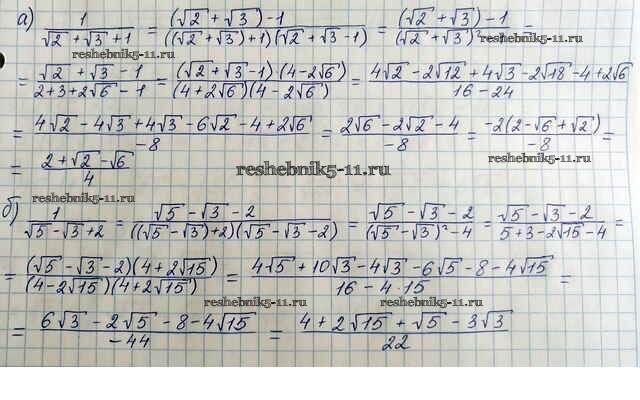 а) 1/(√2 + √3 + 1) = ((√2 + √3) - 1)/(((√2 + √3) + 1)(√2 + √3 - 1)) = ((√2 + √3) - 1)/((√2 + √3)² - 1) =
reshebnik5-11.ru
reshebnik5-11.ru
= (√2 + √3 - 1)/(2 + 3 + 2√6 - 1) = ((√2 + √3 - 1)(4 - 2√6))/((4 + 2√6)(4 - 2√6)) = (4√2 - 2√12 + 4√3 - 2√18 - 4 + 2√6)/(16 - 24)
= (4√2 - 4√3 + 4√3 - 6√2 - 4 + 2√6)/(-8) = (2√6 - 2√2 - 4)/(-8) = (-2(2 - √6 + √2))/(-8) =
reshebnik5-11.ru
reshebnik5-11.ru
= (2 + √2 - √6)/4
reshebnik5-11.ru
б) 1/(√5 - √3 + 2) = (√5 - √3 - 2)/(((√5 - √3) + 2)(√5 - √3 - 2)) = (√5 - √3 - 2)/((√5 - √3)² - 4) = (√5 - √3 - 2)/(5 + 3 - 2√15 - 4) =
= ((√5 - √3 - 2)(4 + 2√15))/((4 - 2√15)(4 + 2√15)) = (4√5 + 10√3 - 4√3 - 6√5 - 8 - 4√15)/(16 - 4·15) =
reshebnik5-11.ru
= (6√3 - 2√5 - 8 - 4√15)/(-44) = (4 + 2√15 + √5 - 3√3)/22
reshebnik5-11.ru